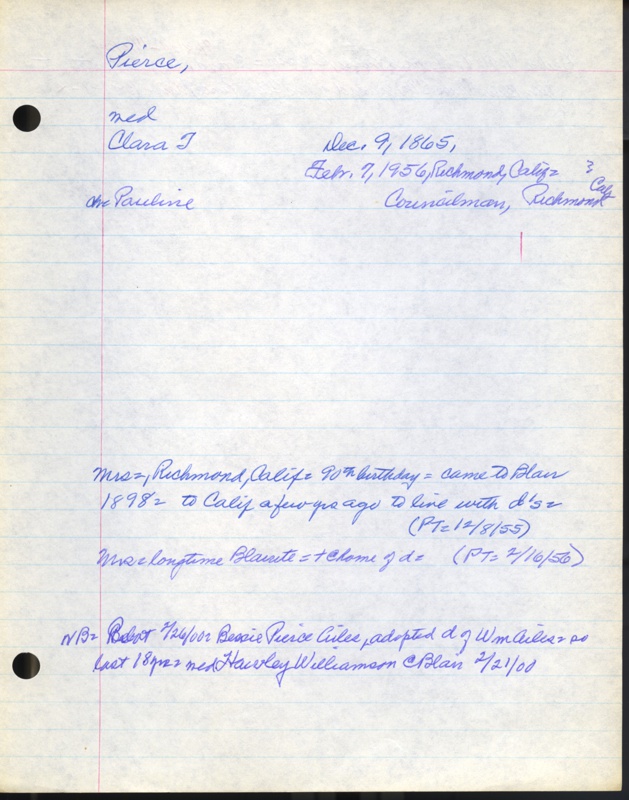 Pierce,
med
Clara T Dec. 9, 1865,
Febr. 7, 1956, Richmond, Calif=
ch= Pauline Councilman, Richmond Calif
Mrs=, Richmond, Calif= 90th birthday = came to Blair
1898= to Calif a few yrs ago to live with d's=
(PT= 12/8/55)
Mrs= longtime Blairite = + @ home of d= (PT= 2/16/56)
NB= 2/26/00= Bessie Pierce Ailes, adopted d of Wm Ailes= so
last 18yrs= med Hawley Williamson @Blair 2/21/00